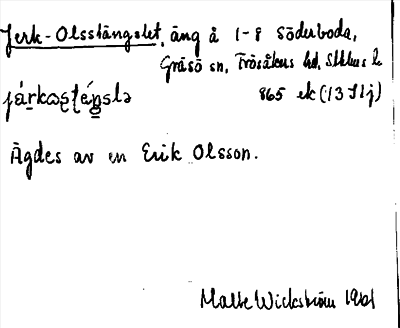 Jerk-Olsstängslet, äng å 1-8 Söderboda,
Gräsö sn, Frösåkers hd, Sthlms l.
865 ek (13 I 1j)
Ägdes av en Erik Olsson.
Malte Wickström 1961